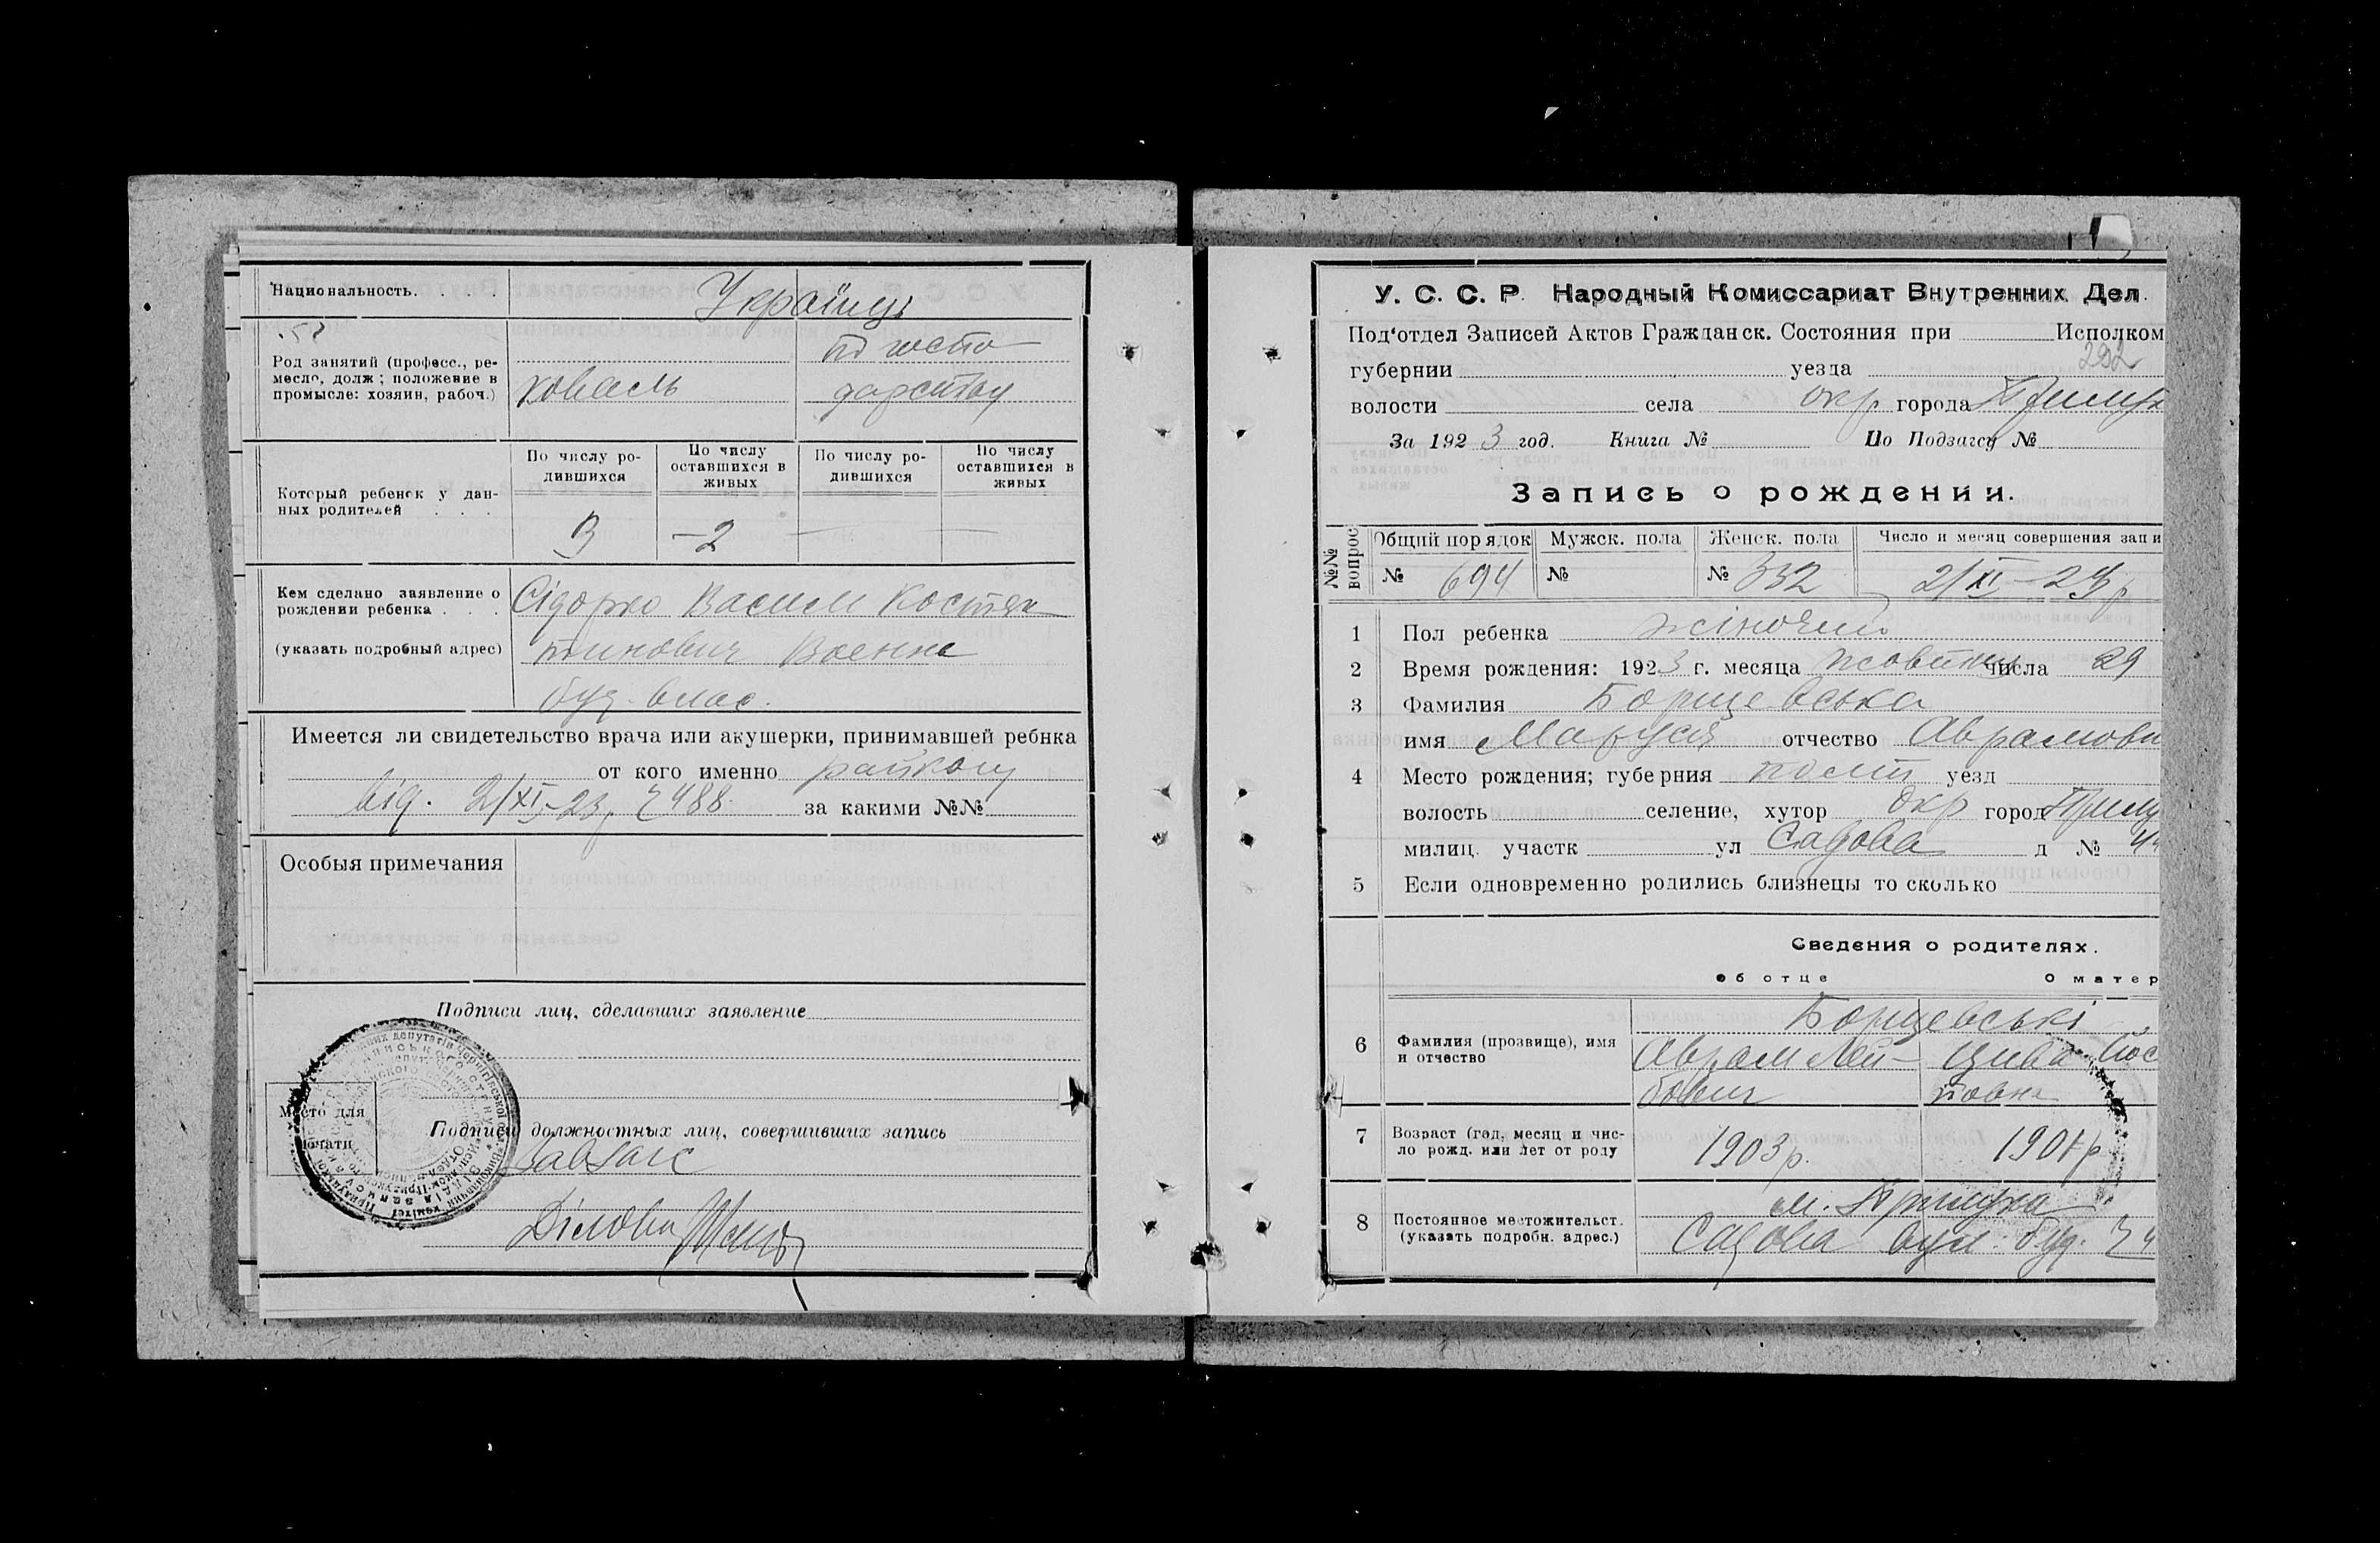 Национальность. . . . .
Українці
Род занятий (професс., ре-
месло, долж; положение в
промысле: хозяин, рабоч.)
коваль
по госпо
дарству
Который ребенок у дан-
ных родителей . . .
По числу ро-
дившихся
По числу
оставшихся в
живых
По числу ро-
дившихся
По числу
оставшихся в
живых
3 —2 — —
Кем сделано заявление о
рождении ребенка . . .
(указать подробный адрес)
Сідорко Василь Костян
тинович Воєнна
буд. влас.
Имеется ли свидетельство врача или акушерки, принимавшей ребнка
от кого именно райкому
від. 2/XI-23р. 488 за какими №№
Особыя примечания
Подписи лиц, сделавших заявление
Место для
печати
Подписи должностных лиц, совершивших запись
ЗавЗагс
Діловод
У. С. С. Р. Народный Комиссариат Внутренних Дел.
Под‘отдел Записей Актов Гражданск. Состояния при Исполком
292
губернии уезда
волости села окр города Прилук
За 1923 год. Книга № По Подзагсу №
Запись о рождении.
№№
вопрос
Общий порядок Мужск. пола Женск. пола Число и месяц совершения запи
№ 694 № № 332 2/XI-23р
1 Пол ребенка жіночий
2 Время рождения: 1923 г. месяца жовтня числа 29
3 Фамилия Борщевська
имя Маруся отчество Аврамовн
4 Место рождения; губерния Полт уезд
волость селение, хутор окр город Прилу
милиц. участк ул Садова д № 44
5 Если одновременно родились близнецы то сколько
Сведения о родителях.
об отце О матер
6 Фамилия (прозвище), имя
и отчество
Борщевські
Аврам Лей- Цива Йос
бович повна
7 Возраст (год, месяц и чис-
ло рожд. или лет от роду
1903р. 1901р
8 Постоянное местожительст.
(указать подробн. адрес.)
м. Прилука
Садова вул. буд. 44